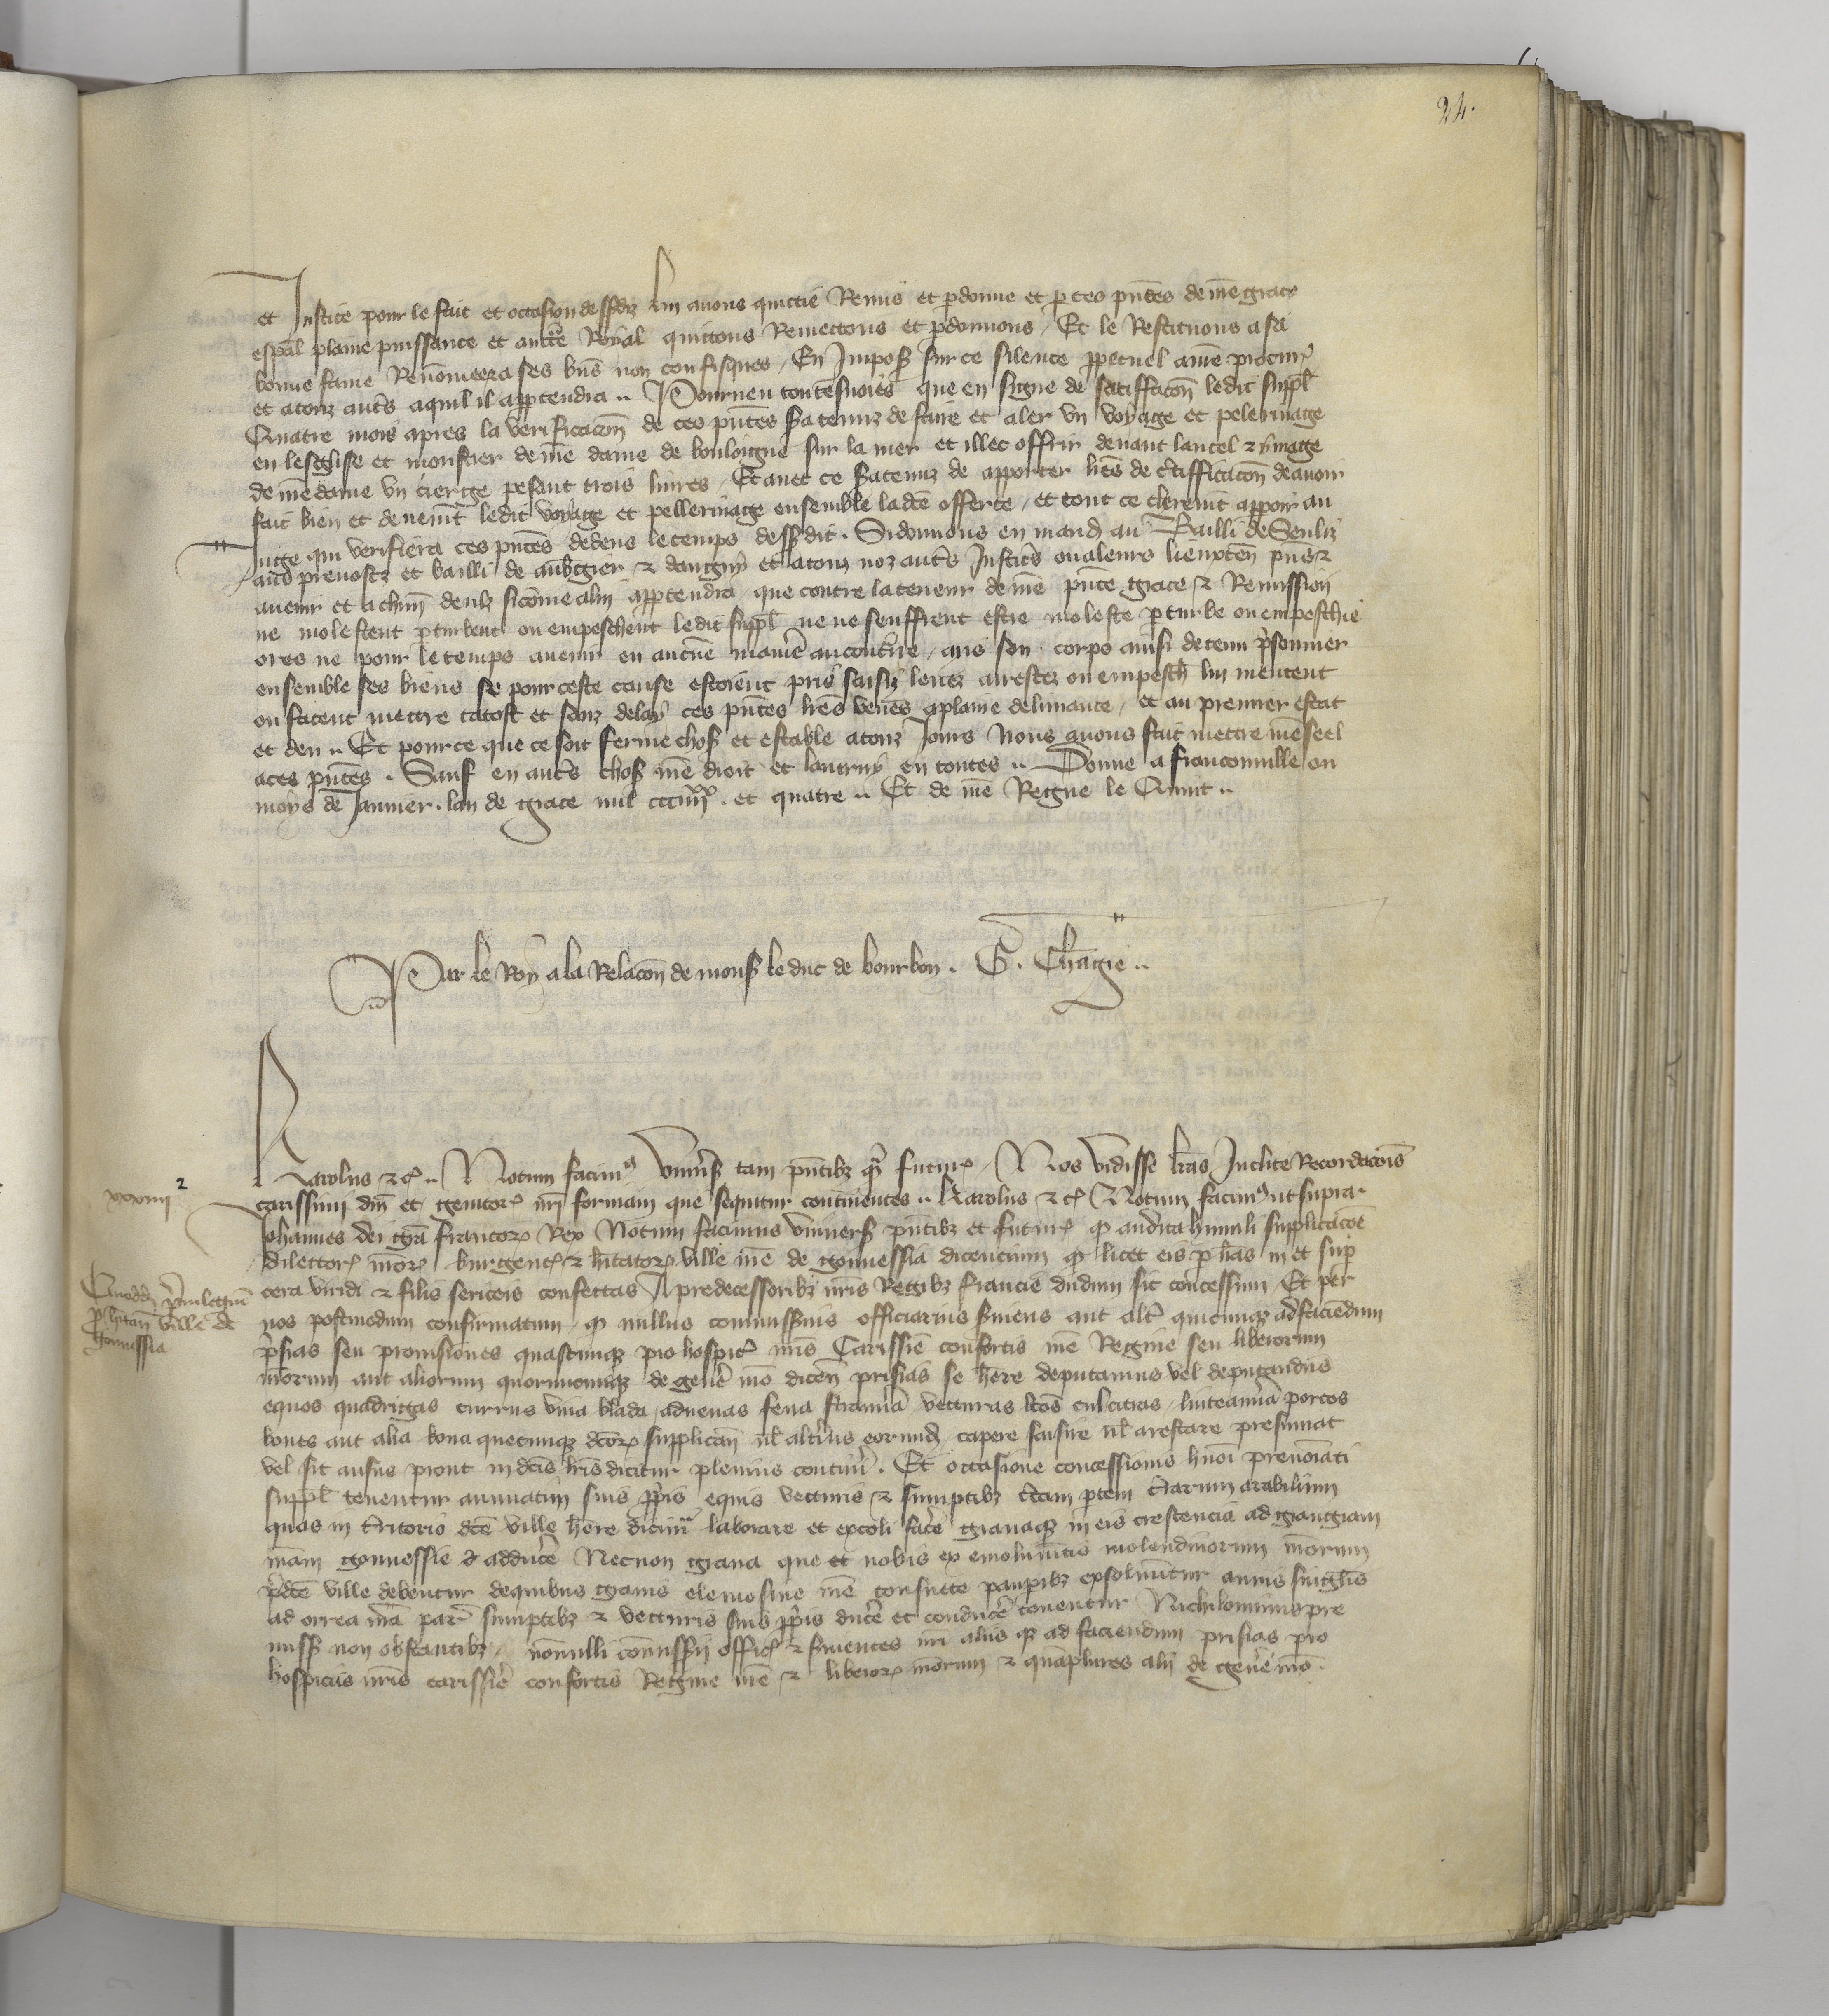 24.
et Justice pour le fait et occasion dessusdiz lui auons quictie Remis et pdonne et p ces pntes de nre grace
espal plaine puissance et aucte Royal quictons Remectons et pdonnons / Et le Restituons a sa
bonne fame Renommee et a ses bns non confisques / En Impost sur ce silence ppetuel a nre procur
et a touz autres a qui il apptendra .. Pourueu toutesuoies que en signe de satiffacon ledit suppl
Quatre mois apres la verificacon de ces pntes sera tenuz de faire et aler vn voyage et pelerinage
en leseglise et moustier de nre dame de bouloigne sur la mer et illec offrir deuant lautel & ymage
de nre dame vn cierge pesant trois liures / Et auec ce sera tenuz de apporter lres de certifficacon de auoir
fait bien et deuemt ledit voyage et pellerinage ensemble lade offerte / et tout ce clerement apparoir au
Juge qui verifiera ces pntes dedens le temps dessus dit . Si donnons en mand au Bailli de Senliz
aus preuostz et bailli de aubgier & dangny et a touz noz autres Justiciers ou a leurs lieuxten pns &
auenir et a chun deulz si comme a lui apptendra que contre la teneur de nre pnte grace & Remission
ne molestent ptourbent ou empeschent ledit suppl ne ne seuffrent estre moleste ptourbe ou empeschie
ores ne pour le temps auenir en aucune maniere au contre / ains son corps ainsi detenu prisonnier
ensemble ses biens se pour ceste cause estoient pris saisiz leuez arrestez ou empesch lui mectent
ou facent mectre tatost et sanz delay ces pntes lres veues a plaine deliurance / et au premier estat
et deu .. Et pour ce que ce soit ferme chose et estable a touz Jours Nous auons fait mectre nre seel
a ces pntes . Sauf en autres choses nre droit et lautruy en toutes .. Donne a franconuille ou
moys de Januier . lan de grace mil ccciiii xx . et quatre .. Et de nre Regne le Quint ..
Par le Roy a la Relacon de mons le duc de bourbon . G . Charge ..
Karolus &c .. Notum facim9 Vniusis tam pntibz q futur / Nos vidisse lras Inclite Recordacois
xxxiiii 2
carissimi dni et genitor nri formam que sequitur continentes .. Karolus &c Notum facim9 ut supra
Johannes dei gra francor Rex Notum facimus vniuersis pntibz et futur q audita humili supplicacoe
dilector nror burgens & hitator ville nre de gonnessia dicencium q licet eis p lras in et sup
Quoddam priuilegium
p hitan ville de
gonnessia
cera viridi & filis sericeis confectas A predecessoribz nris Regibz francie dudum sit concessum Et per
nos postmodum confirmatum q nullus commissarius officiarius seruiens aut alter quicumqz ad faciendum
prisias seu prouisiones quascumqz pro hospic nris Carissime consortis nre Regine seu liberorum
nrorum aut aliorum quorumcumqz de genere nro dicen prisias se here deputatus vel deputandus
equos quadrigas currus vina blada aduenas fena stramina vecturas lctos culcitras / linteamina porcos
boues aut alia bona quecunqz dcor supplican ul altius eorumd capere saisire ul arestare presumat
vel sit ausus prout in dcis lris dicitur plenius contineri . Et occasione concessionis hmoi prenoiati
suppl tenentur annuatim suis ppris equis vecturis & sumptibz ctam ptem trarum arabilium
quas in tritorio dce ville here dicimur laborare et excoli facere granaqz in eis crescencia ad grangiam
nram gonnessie adducere Necnon grana que et nobis ex emolumtis molendinorum nrorum
predce ville debentur de quibus granis elemosine nre consuete paupibz exsoluuntur annis singlis
ad orrea nra par sumptibz & vecturis suis ppris ducere et conducere tenentur Nichilominus pre
missis non obstantibz / nonnulli comissarii offic & seruientes nri alias qz ad faciendum prisias pro
hospiciis nris carissime consortis Regine nre & liberor nrorum & quamplures alii de genere nro .